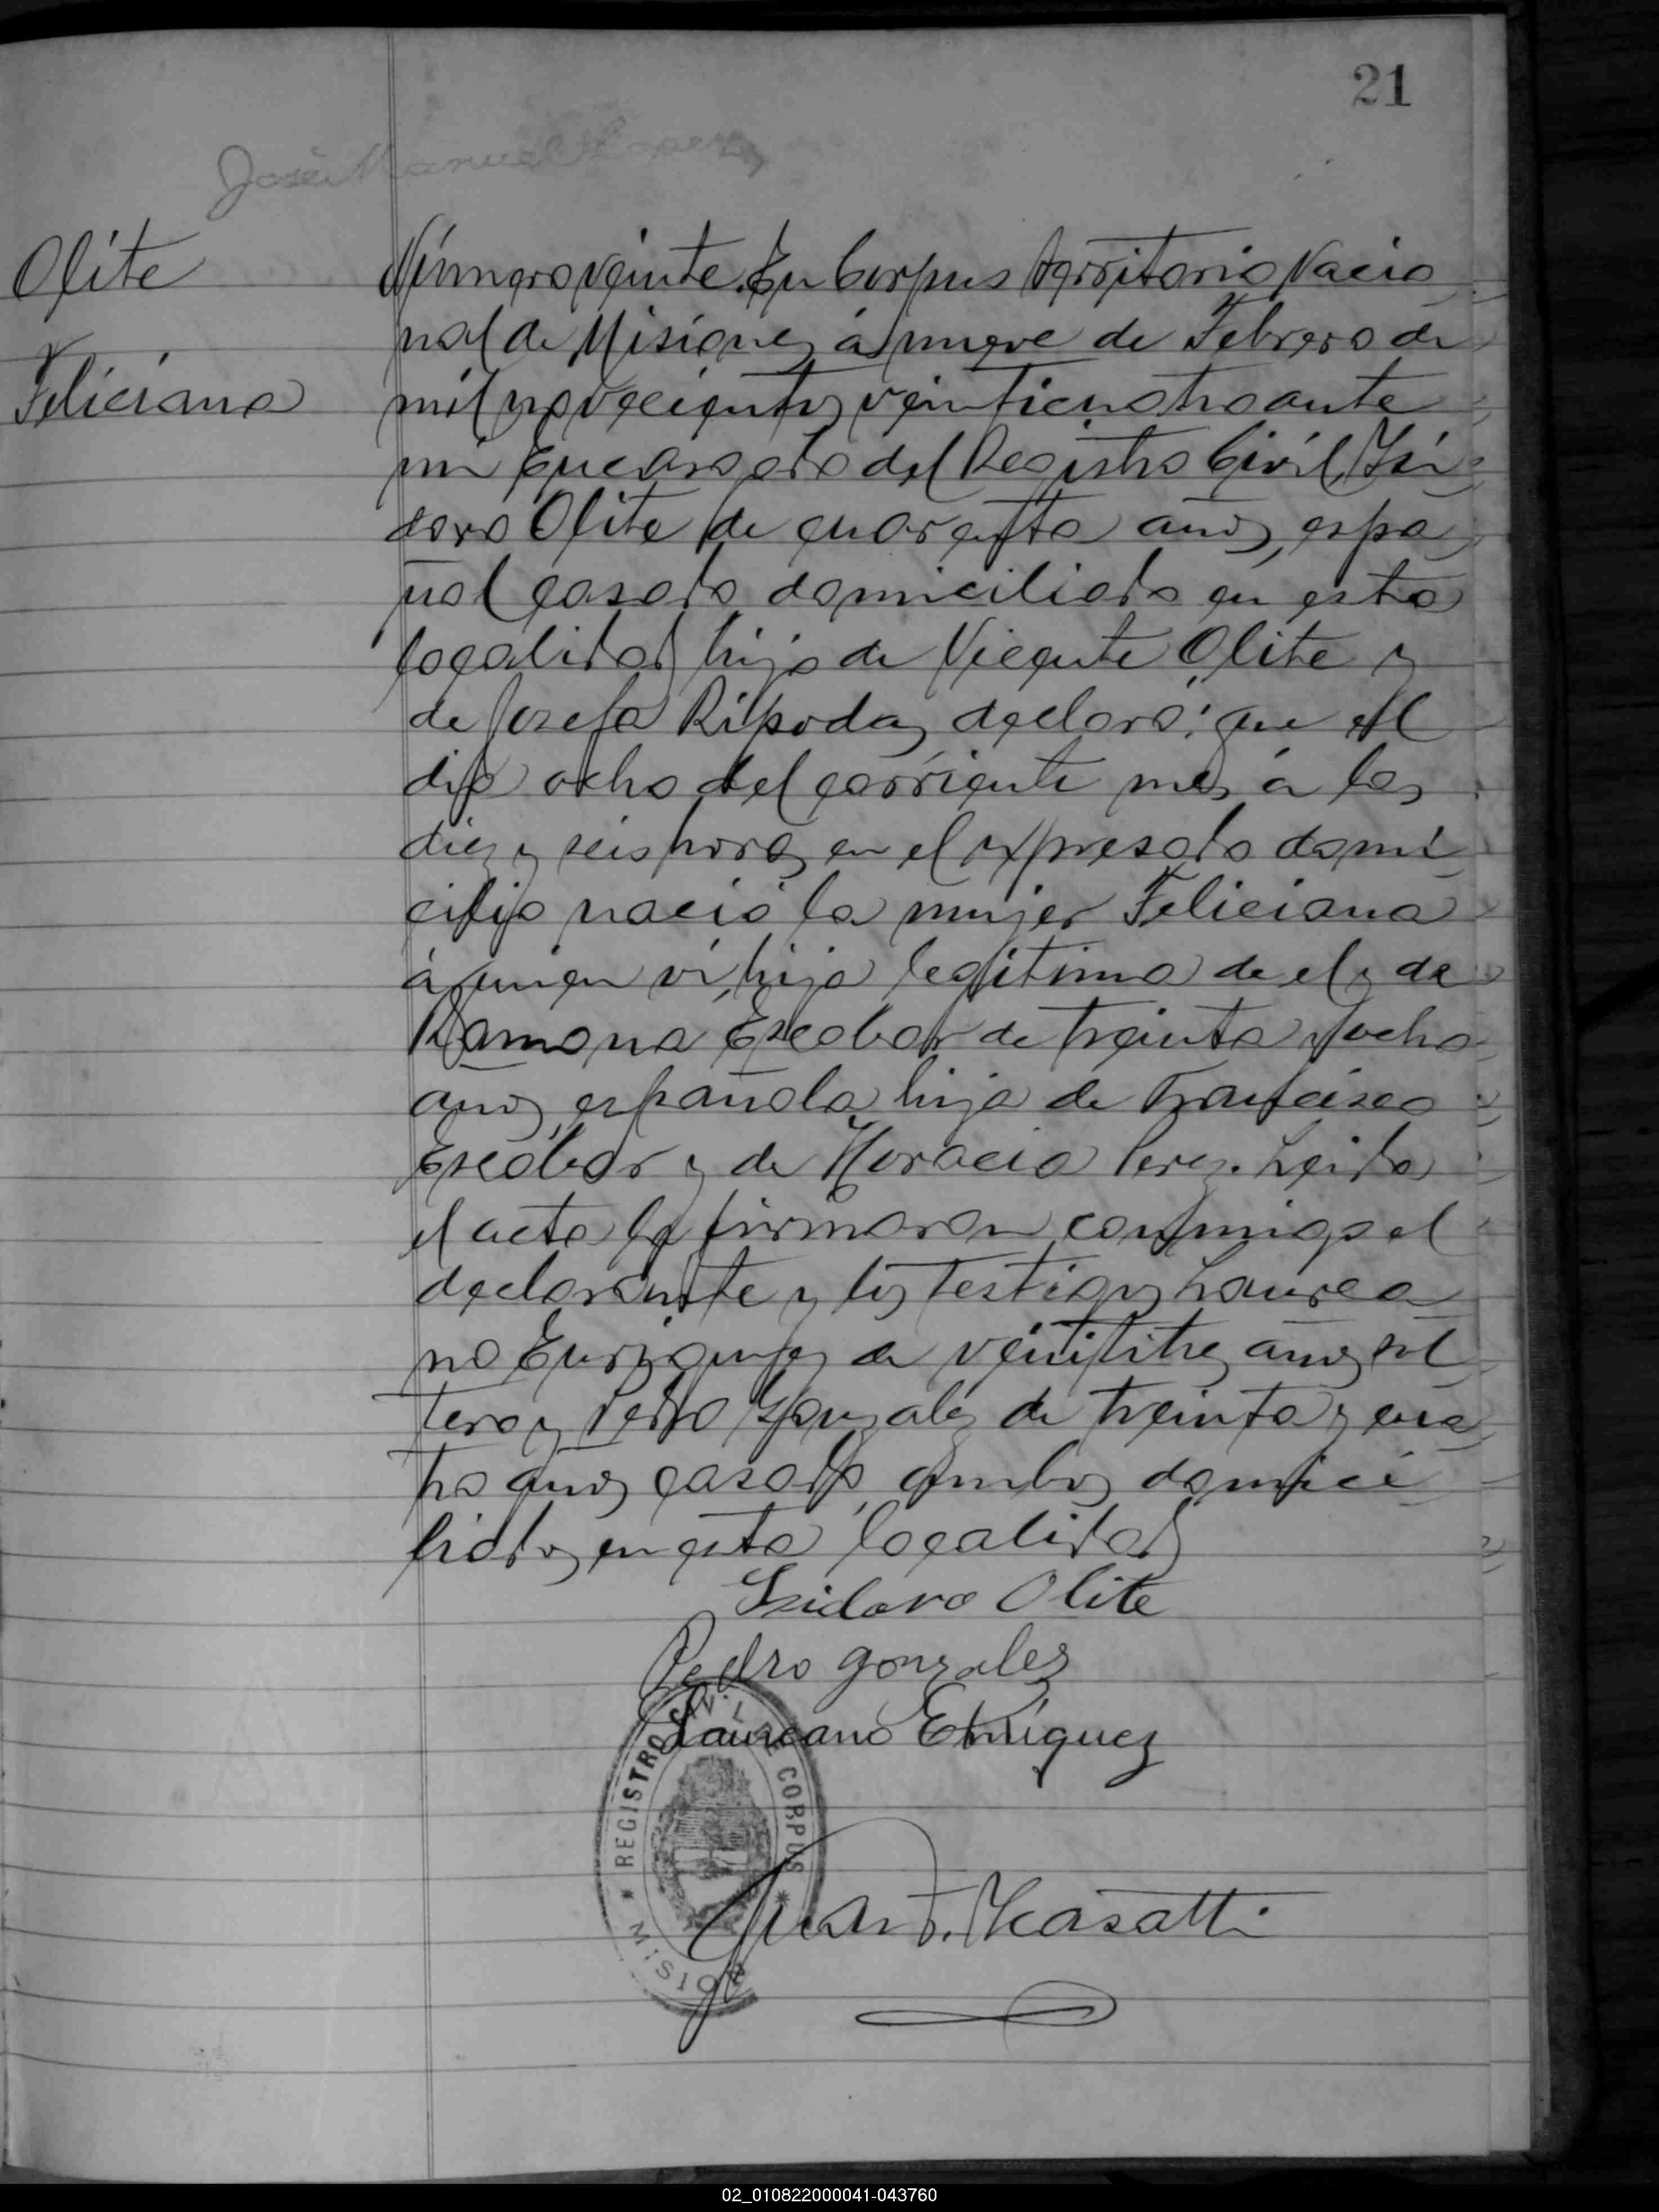 21
José Manuel Lopez
Olite
Feliciana
Número veinte. En Corpus Territorio Nacio
nal de Misiones á nueve de Febrero de
mil novecientos veinticuatro ante
mi Encargado del Registro Civil, Isi
doro Olite de cuarenta años, espa
ñol casado domiciliado en esta
localidad hijo de Vicente Olite y
de Josefa Ripodas declaró: que el
dia ocho del corriente mes á las
diez y seis horas en el expresado domi
cilio nació la mujer Feliciana
á quien ví, hija legitima de el y de
Ramona Escobar de treinta y ocho
años española hija de Francisco
Escobar y de Horacia Perez. Leida
el acta la firmaron conmigo el
declarante y los testigos Laurea
no Enriquez de veintitres años sol
tero y Pedro Gonzalez de treinta y cua
tro años casado, ambos domici
liados en esta localidad
Isidoro Olite
Pedro gonzales
Laureano Enriquez
REGISTRO CIVIL DE CORPUS
* MISIONES *
Juan F. Masatti
02_010822000041-043760